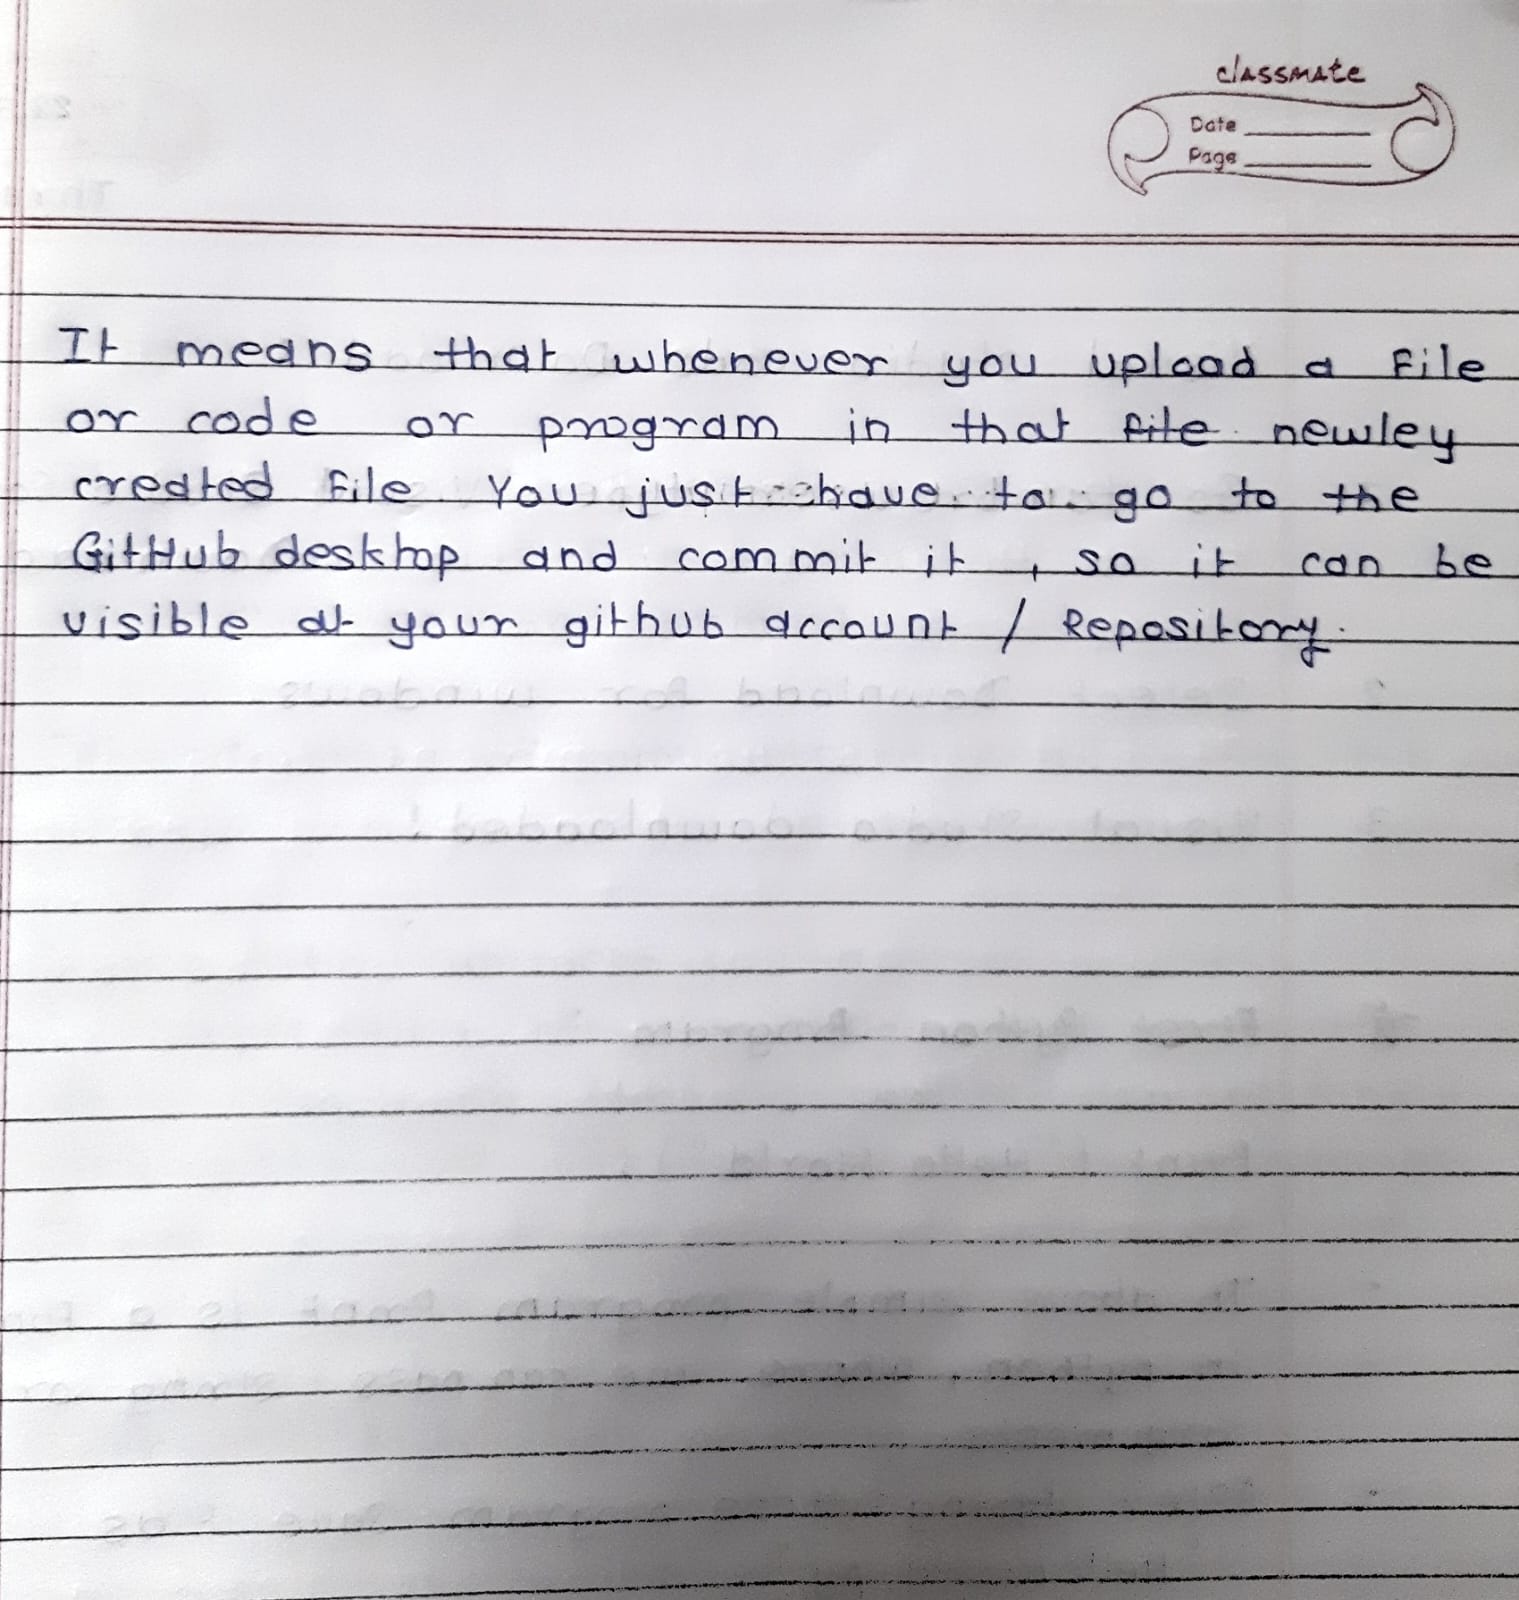 classmate
Date
Page
It means that whenever you upload a file
or code or program in that file newley
created file. You just have to go to the
GitHub desktop and commit it, so it can be
visible at your github account / Repository.